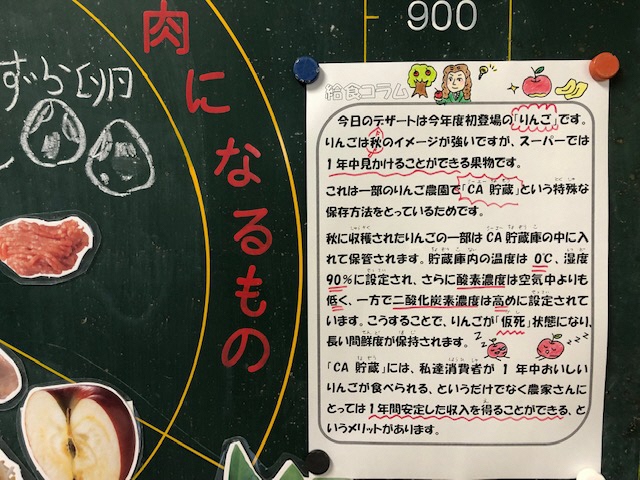 900
肉になるもの
ずら卵
給食コラム
今日のデザートは今年度初登場の「りんご」です。
りんごは秋のイメージが強いですが、スーパーでは
1年中見かけることができる果物です。
これは一部のりんご農園で「CA 貯蔵」という特殊な
保存方法をとっているためです。
秋に収穫されたりんごの一部は CA 貯蔵庫の中に入
れて保管されます。貯蔵庫内の温度は 0℃、湿度
90%に設定され、さらに酸素濃度は空気中よりも
低く、一方で二酸化炭素濃度は高めに設定されて
います。こうすることで、りんごが「仮死」状態になり、
長い間鮮度が保持されます。
「CA 貯蔵」には、私達消費者が 1 年中おいしい
りんごが食べられる、というだけでなく農家さんに
とっては1年間安定した収入を得ることができる、と
いうメリットがあります。